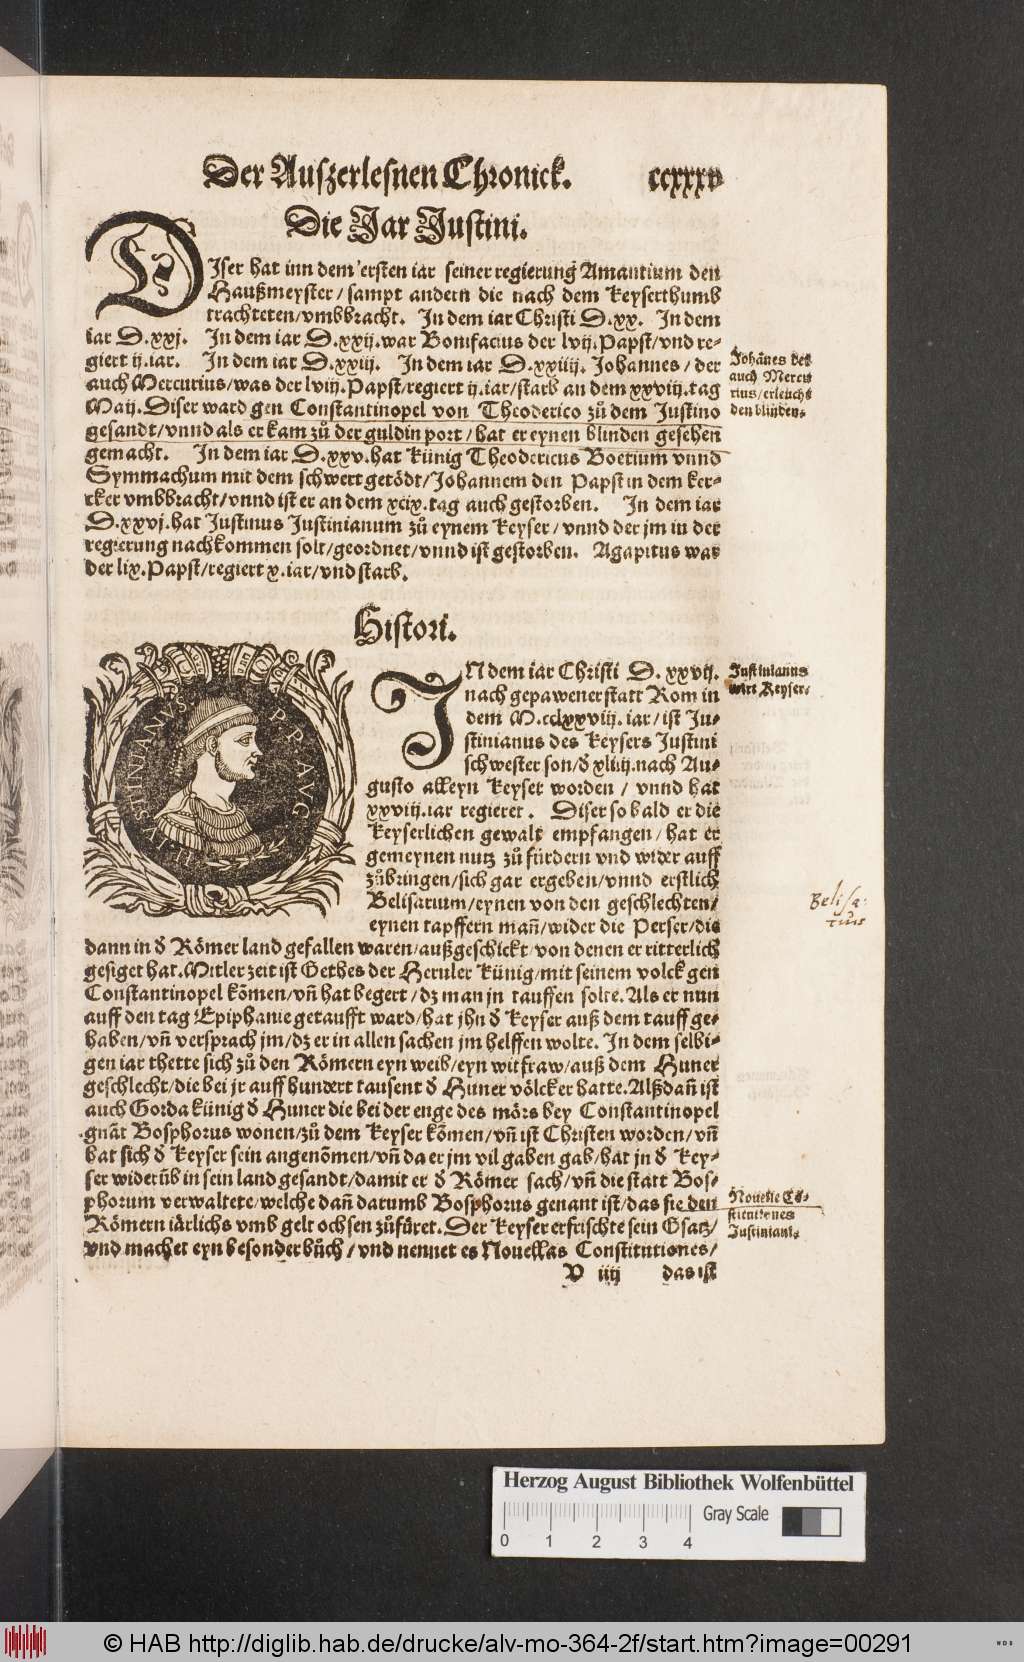 Der Auszerlesnen Chronick. ccxxxv
Die Jar Justini.
DIser hat inn dem ersten iar seiner regierung Amantium den
Haußmeyster / sampt andern die nach dem Keyserthumb
trachteten / vmbbracht. In dem iar Christi D.xx. In dem
iar D.xxj. In dem iar D.xxij. war Bonifacius der lvij. Papst / vnd re-
giert ij.iar. In dem iar D.xxiij. In dem iar D.xxiiij. Johannes / der
auch Mercurius / was der lviij. Papst / regiert ij.iar / starb an dem xxviij.tag
Maij. Diser ward gen Constantinopel von Theoderico zů dem Justino
gesandt / vnnd als er kam zů der guldin port / hat er eynen blinden gesehen
gemacht. In dem iar D.xxv. hat Künig Theodericus Boetium vnnd
Symmachum mit dem schwert getödt / Johannem den Papst in dem ker-
cker vmbbracht / vnnd ist er an dem xcix.tag auch gestorben. In dem iar
D.xxvj. hat Justinus Justinianum zů eynem Keyser / vnnd der jm in der
regierung nachkommen solt / geordnet / vnnd ist gestorben. Agapitus was
der lix. Papst / regiert x.iar / vnd starb.
Johānes der
auch Mercu
rius / erleucht
den blinden.
Histori.
IVSTINIANVS. P P. AVG
IN dem iar Christi D. xxvij.
nach gepawener statt Rom in
dem M.cclxxviij. iar / ist Ju-
stinianus des Keysers Justini
schwester son / ð xliiij. nach Au-
gusto alleyn Keyser worden / vnnd hat
xxviij.iar regieret. Diser so bald er die
Keyserlichen gewalt empfangen / hat er
gemeynen nutz zů fürdern vnd wider auff
zůbringen / sich gar ergeben / vnnd erstlich
Belisarium / eynen von den geschlechten /
eynen tapffern mañ / wider die Perser / die
dann in ð Römer land gefallen waren / außgeschickt / von denen er ritterlich
gesiget hat. Mitler zeit ist Gethes der Heruler Künig / mit seinem volck gen
Constantinopel kōmen / vñ hat begert / dz man jn tauffen solte. Als er nun
auff den tag Epiphanie getaufft ward / hat jhn ð Keyser auß dem tauff ge-
haben / vñ versprach jm / dz er in allen sachen jm helffen wolte. In dem selbi-
gen iar thette sich zů den Römern eyn weib / eyn witfraw / auß dem Huner
geschlecht / die bei jr auff hundert tausent ð Huner völcker hatte. Alßdañ ist
auch Gorda künig ð Huner die bei der enge des mörs bey Constantinopel
gnāt Bosphorus wonen / zů dem Keyser kōmen / vñ ist Christen worden / vñ
hat sich ð Keyser sein angenōmen / vñ da er jm vil gaben gab / hat jn ð Key-
ser widerūb in sein land gesandt / damit er ð Römer sach / vñ die statt Bos-
phorum verwaltete / welche dañ darumb Bosphorus genant ist / das sie den
Römern iärlichs vmb gelt ochsen zůfüret. Der Keyser erfrischte sein Gsatz /
vnd machet eyn besonder bůch / vnd nennet es Nouellas Constitutiones /
V iiij das ist
Justinianus
wirt Keyser.
Belisa-
rius
Nouelle Cō-
stitutiones
Justiniani.
Herzog August Bibliothek Wolfenbüttel
Gray Scale
0 1 2 3 4
© HAB http://diglib.hab.de/drucke/alv-mo-364-2f/start.htm?image=00291
WDB